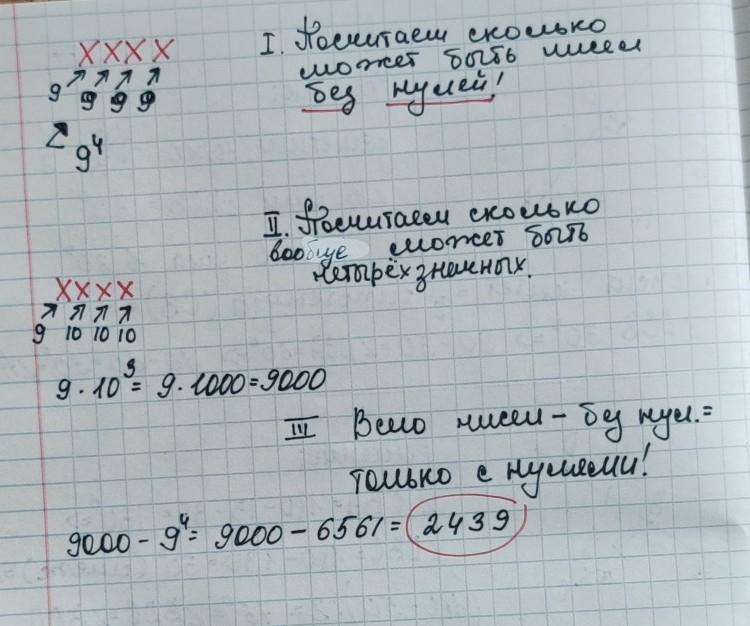 XXXX
9 9 9 9
9⁴
I. Посчитаем сколько
может быть чисел
без нулей!
II. Посчитаем сколько
вообще может быть
четырёхзначных.
XXXX
9 10 10 10
9·10³= 9·1000=9000
III Всего чисел – без нул.=
только с нулями!
9000 – 9⁴= 9000 – 6561= 2439